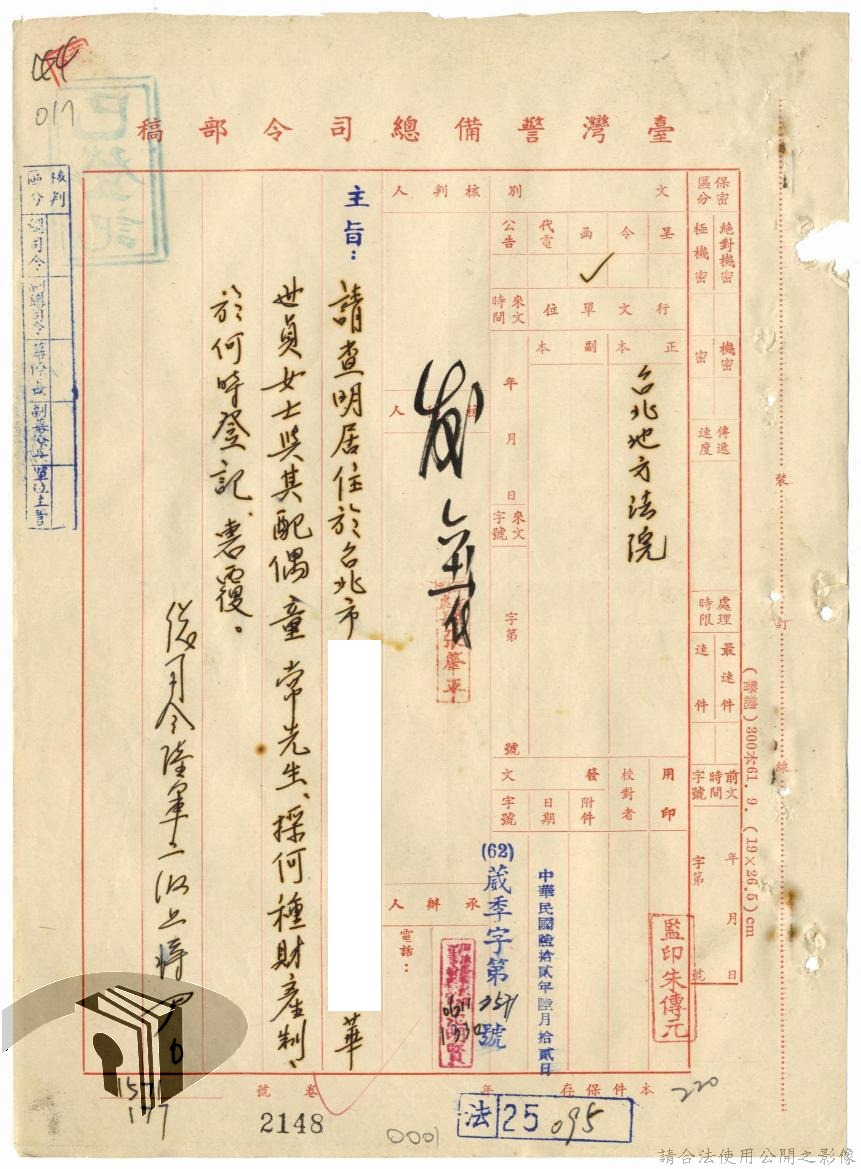 臺灣警備總司令部稿
保密區分
絕對機密
極機密
機密
密
傳遞速度
處理時限
最速件
速件
前文時間字號
年 月 日
字第 號
文別
呈
令
函
✓
代電
公告
行文單位
正本
副本
台北地方法院
來文時間
年 月 日
來文字號
字第 號
用印
校對者
發文
附件
日期
字號
中華民國陸拾貳年陸月拾貳日
(62)
葳季字第2571號
監印朱傳元
核判人
核人
承辦人
電話：
0611
1330
主旨：
請查明居住於台北市 華
世貞女士與其配偶童常先生、採何種財產制、
於何時登記、惠覆。
已登記
核判區分
總司令
副總司令
單位主管
017
1571
177
本件保存 年
卷 號
2148
0001
法 25 095
220
裝
訂
線
300本61.9. (19×26.5)cm
請合法使用公開之影像